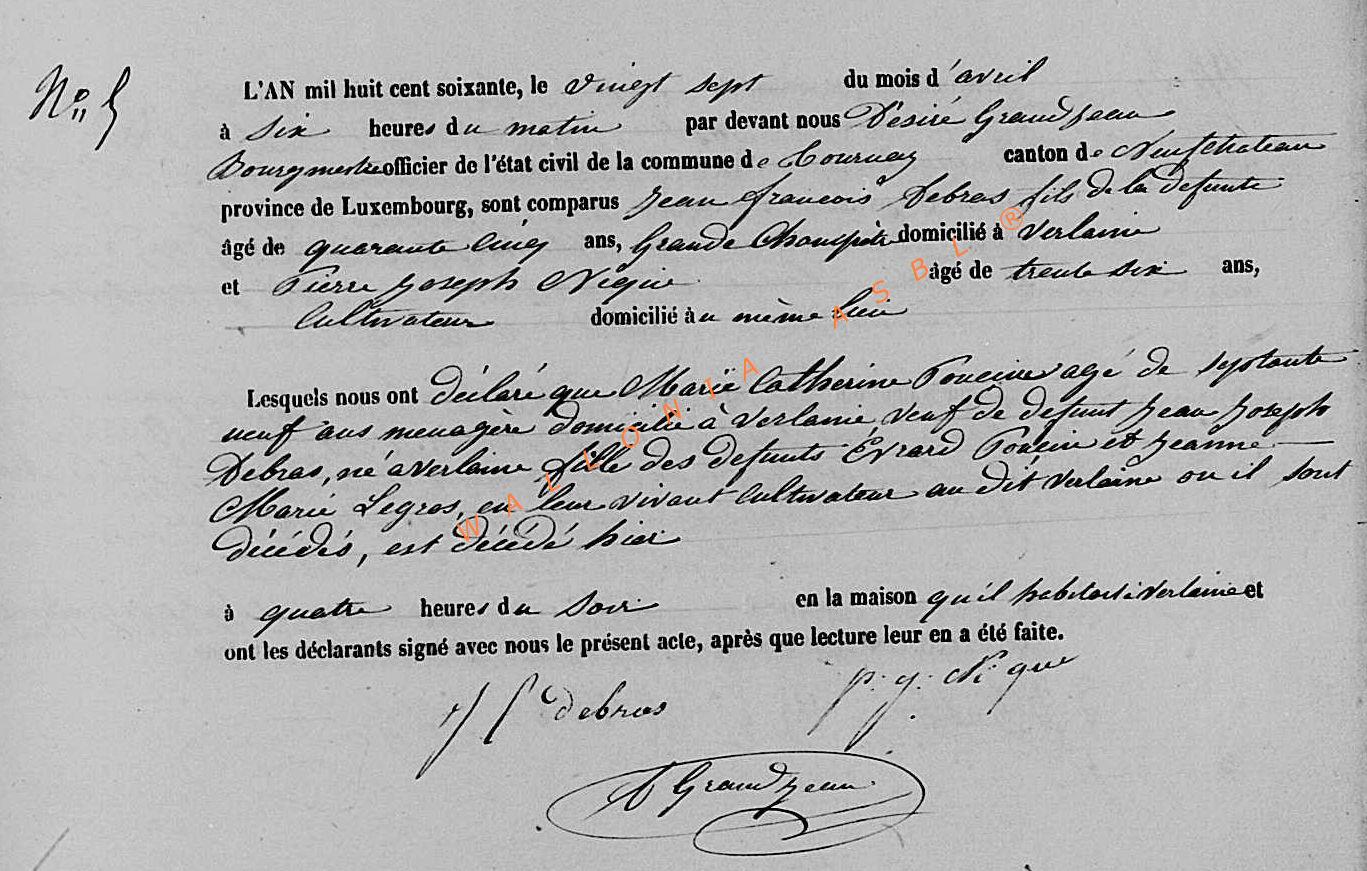 N° 5
L'AN mil huit cent soixante, le vingt sept du mois d'avril
à six heures du matin par devant nous Désiré Grandjean
Bourgmestre officier de l'état civil de la commune de Tournay canton de Neufchateau
province de Luxembourg, sont comparus Jean francois Debras fils de la defunte
âgé de quarante cinq ans, Garde Champêtre domicilié à Verlaine
et Pierre Joseph Nique âgé de trente six ans,
Cultivateur domicilié au même lieu
Lesquels nous ont déclaré que Marie Catherine Poncin agé de septante
neuf ans menagère domicilié à Verlaine, veuf de defunt Jean Joseph
Debras, né a Verlaine fille des defunts Evrard Poncin et Jeanne
Marie Legros, en leur vivant Cultivateur au dit Verlaine ou il sont
décédés, est décédé hier
à quatre heures du Soir en la maison qu'il habitait à Verlaine et
ont les déclarants signé avec nous le présent acte, après que lecture leur en a été faite.
J f debras p. j. Nique
D Grandjean
WALLONIA ASBL ®